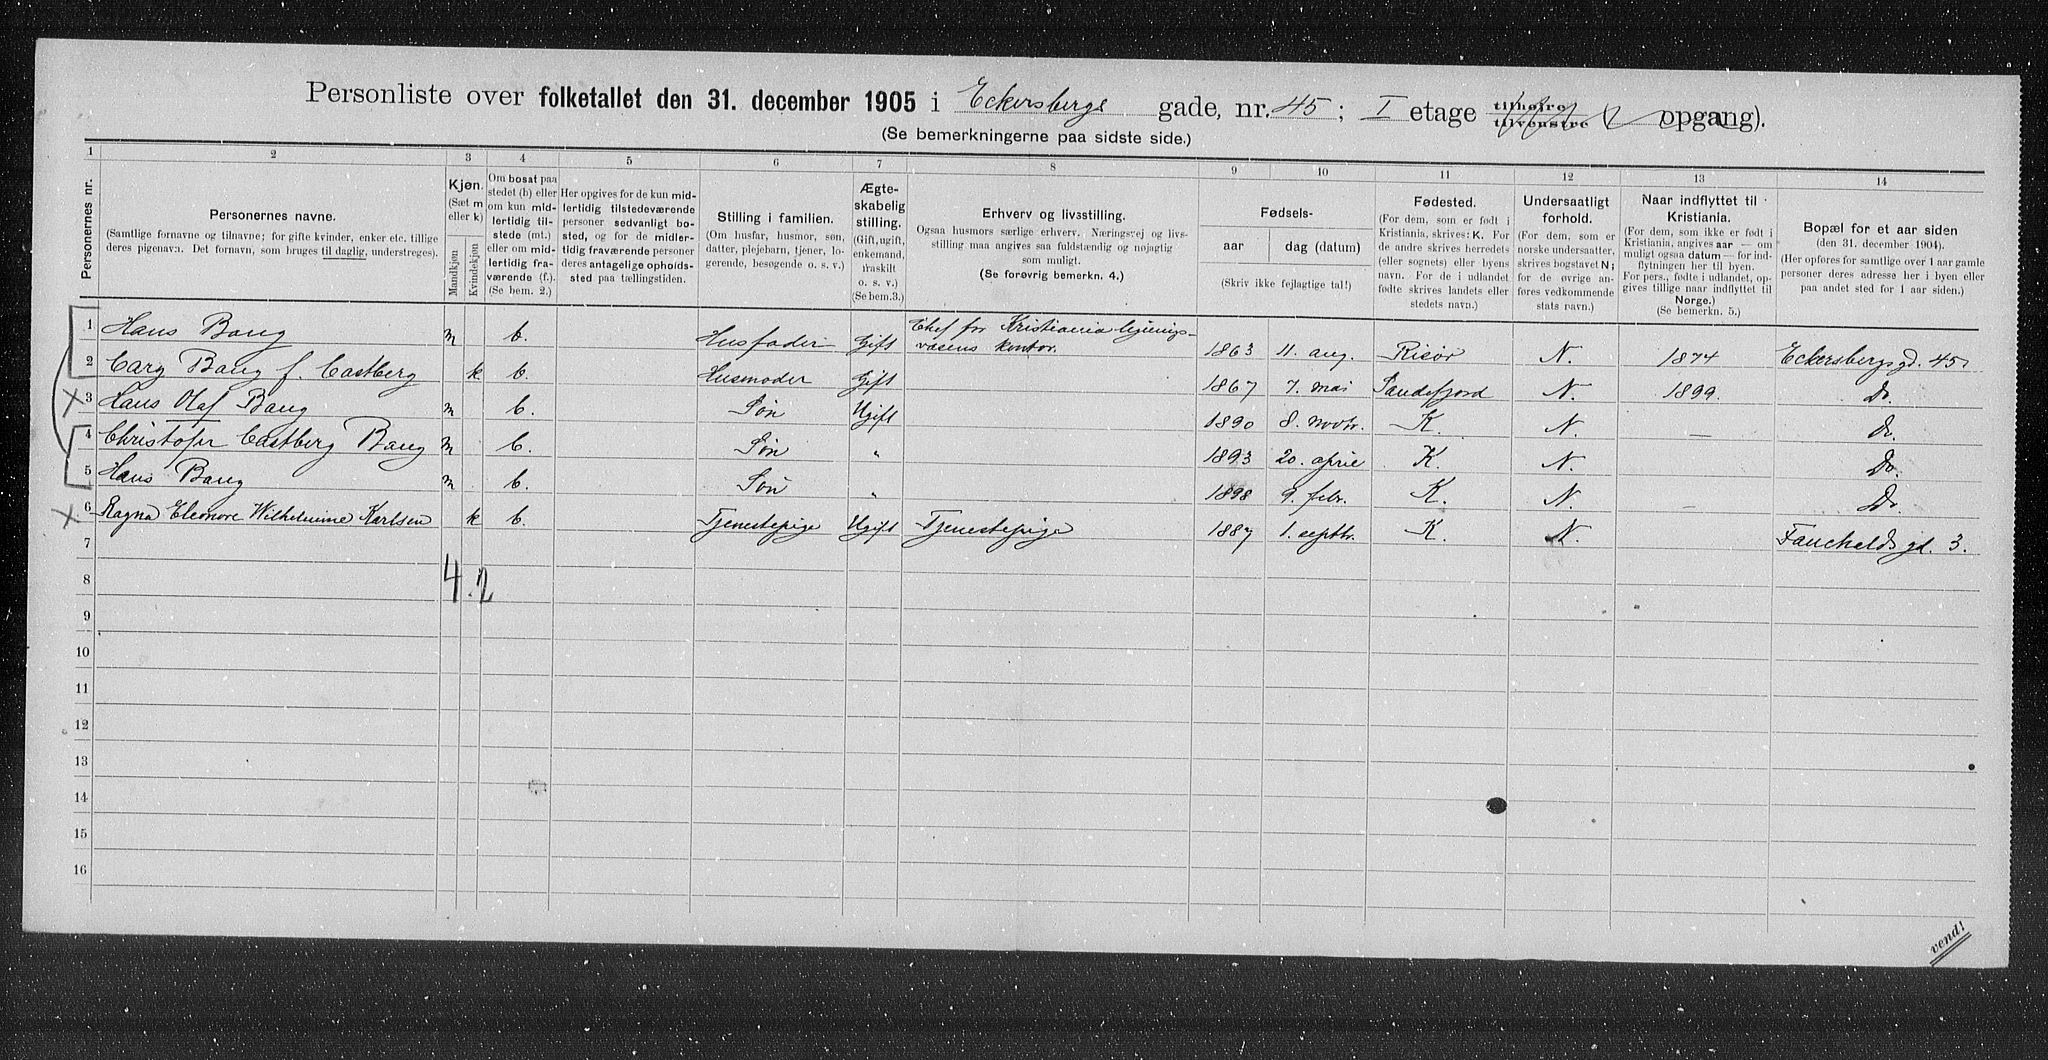 Personliste over folketallet den 31. december 1905 i Eckersbergs gade, nr. 45; I etage tilhøire tilvenstre opgang).
(Se bemerkningerne paa sidste side.)
1 2 3 4 5 6 7 8 9 10 11 12 13 14
Personernes nr.
Personernes navne.
(Samtlige fornavne og tilnavne; for gifte kvinder, enker etc. tillige
deres pigenavn. Det fornavn, som bruges til daglig, understreges).
Kjøn.
(Sæt m
eller k)
Mandkjøn
Kvindekjøn
Om bosat paa
stedet (b) eller
om kun mid-
lertidig til-
stede (mt.)
eller om mid-
lertidig fra-
værende (f.).
(Se bem. 2.)
Her opgives for de kun mid-
lertidig tilstedeværende
personer sedvanligt bo-
sted, og for de midler-
tidig fraværende personer
deres antagelige opholds-
sted paa tællingstiden.
Stilling i familien.
(Om husfar, husmor, søn,
datter, plejebarn, tjener, lo-
gerende, besøgende o. s. v.)
Ægte-
skabelig
stilling.
(Gift, ugift,
enkemand,
fraskilt
o. s. v.)
(Se bem.3.)
Erhverv og livsstilling.
Ogsaa husmors særlige erhverv. Næringsvej og livs-
stilling maa angives saa fuldstændig og nøjagtig
som muligt.
(Se forøvrig bemerkn. 4.)
Fødsels-
aar dag (datum)
(Skriv ikke fejlagtige tal!)
Fødested.
(For dem, som er født i
Kristiania, skrives: K. For
de andre skrives herredets
(eller sognets) eller byens
navn. For de i udlandet
fødte skrives landets eller
stedets navn.)
Undersaatligt
forhold.
(For dem, som er
norske undersaatter,
skrives bogstavet N;
for de øvrige an-
føres vedkommende
stats navn.)
Naar indflyttet til
Kristiania.
(For dem, som ikke er født i
Kristiania, angives aar — om
muligt ogsaa datum — for ind-
flytningen her til byen.
For pers., fødte i udlandet, op-
gives tillige naar indflyttet til
Norge.)
(Se bemerkn. 5.)
Bopæl for et aar siden
(den 31. december 1904).
(Her opføres for samtlige over 1 aar gamle
personer deres adresse her i byen eller
paa andet sted for 1 aar siden.)
1 Hans Bang m b. Husfader Gift Chef for Kristiania ligningsvæsens kontor. 1863 11. aug. Risør N. 1874 Eckersbergsgd. 45
2 Bang f. Castberg k b. Husmoder Gift 1867 7. mai Sandefjord N. 1899. Do.
3 Hans Olaf Bang m b. Søn Ugift 1890 8. novbr. K. N. — Do.
4 Christofer Castberg Bang m b. Søn " 1893 20. april K. N. — Do.
5 Hans Bang m b. Søn " 1898 9. febr. K. N. Do.
6 Ragna Eleonore Wilhelmine Karlsen k b. Tjenestepige Ugift Tjenestepige 1887 1. septbr. K. N. Fauchalds gd. 3.
7
8 4. 2
9
10
11
12
13
14
15
16
vend!